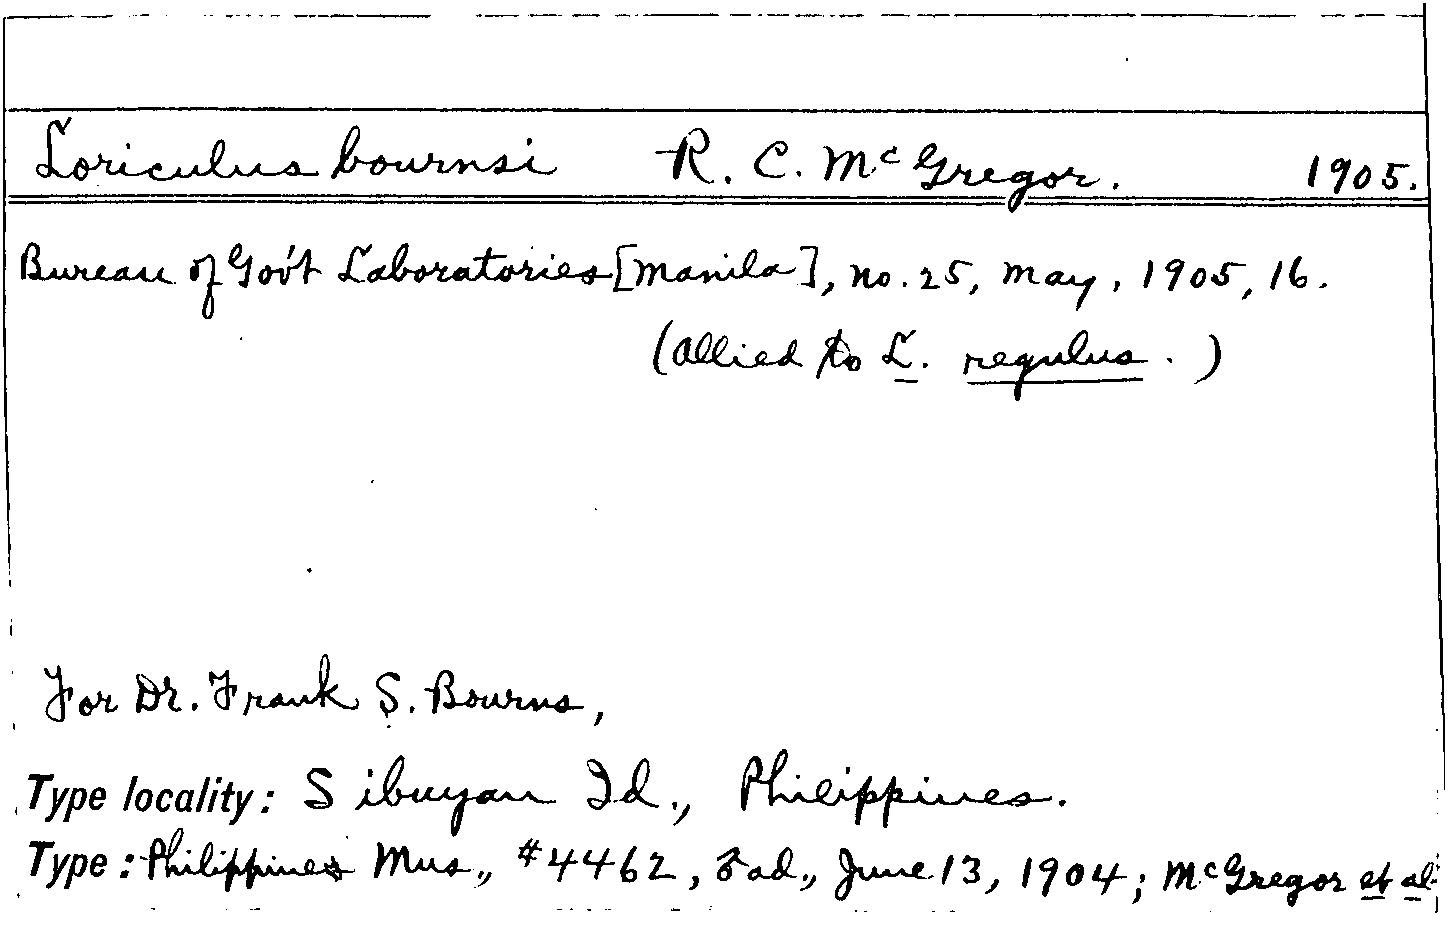 Loriculus bournsi R. C. McGregor. 1905.
Bureau of Gov't Laboratories [Manila], no. 25, May, 1905, 16.
(Allied to L. regulus.)
For Dr. Frank S. Bourns,
Type locality: Sibuyan Id., Philippines.
Type: Philippines Mus., #4462, ♂ ad., June 13, 1904; McGregor et al.